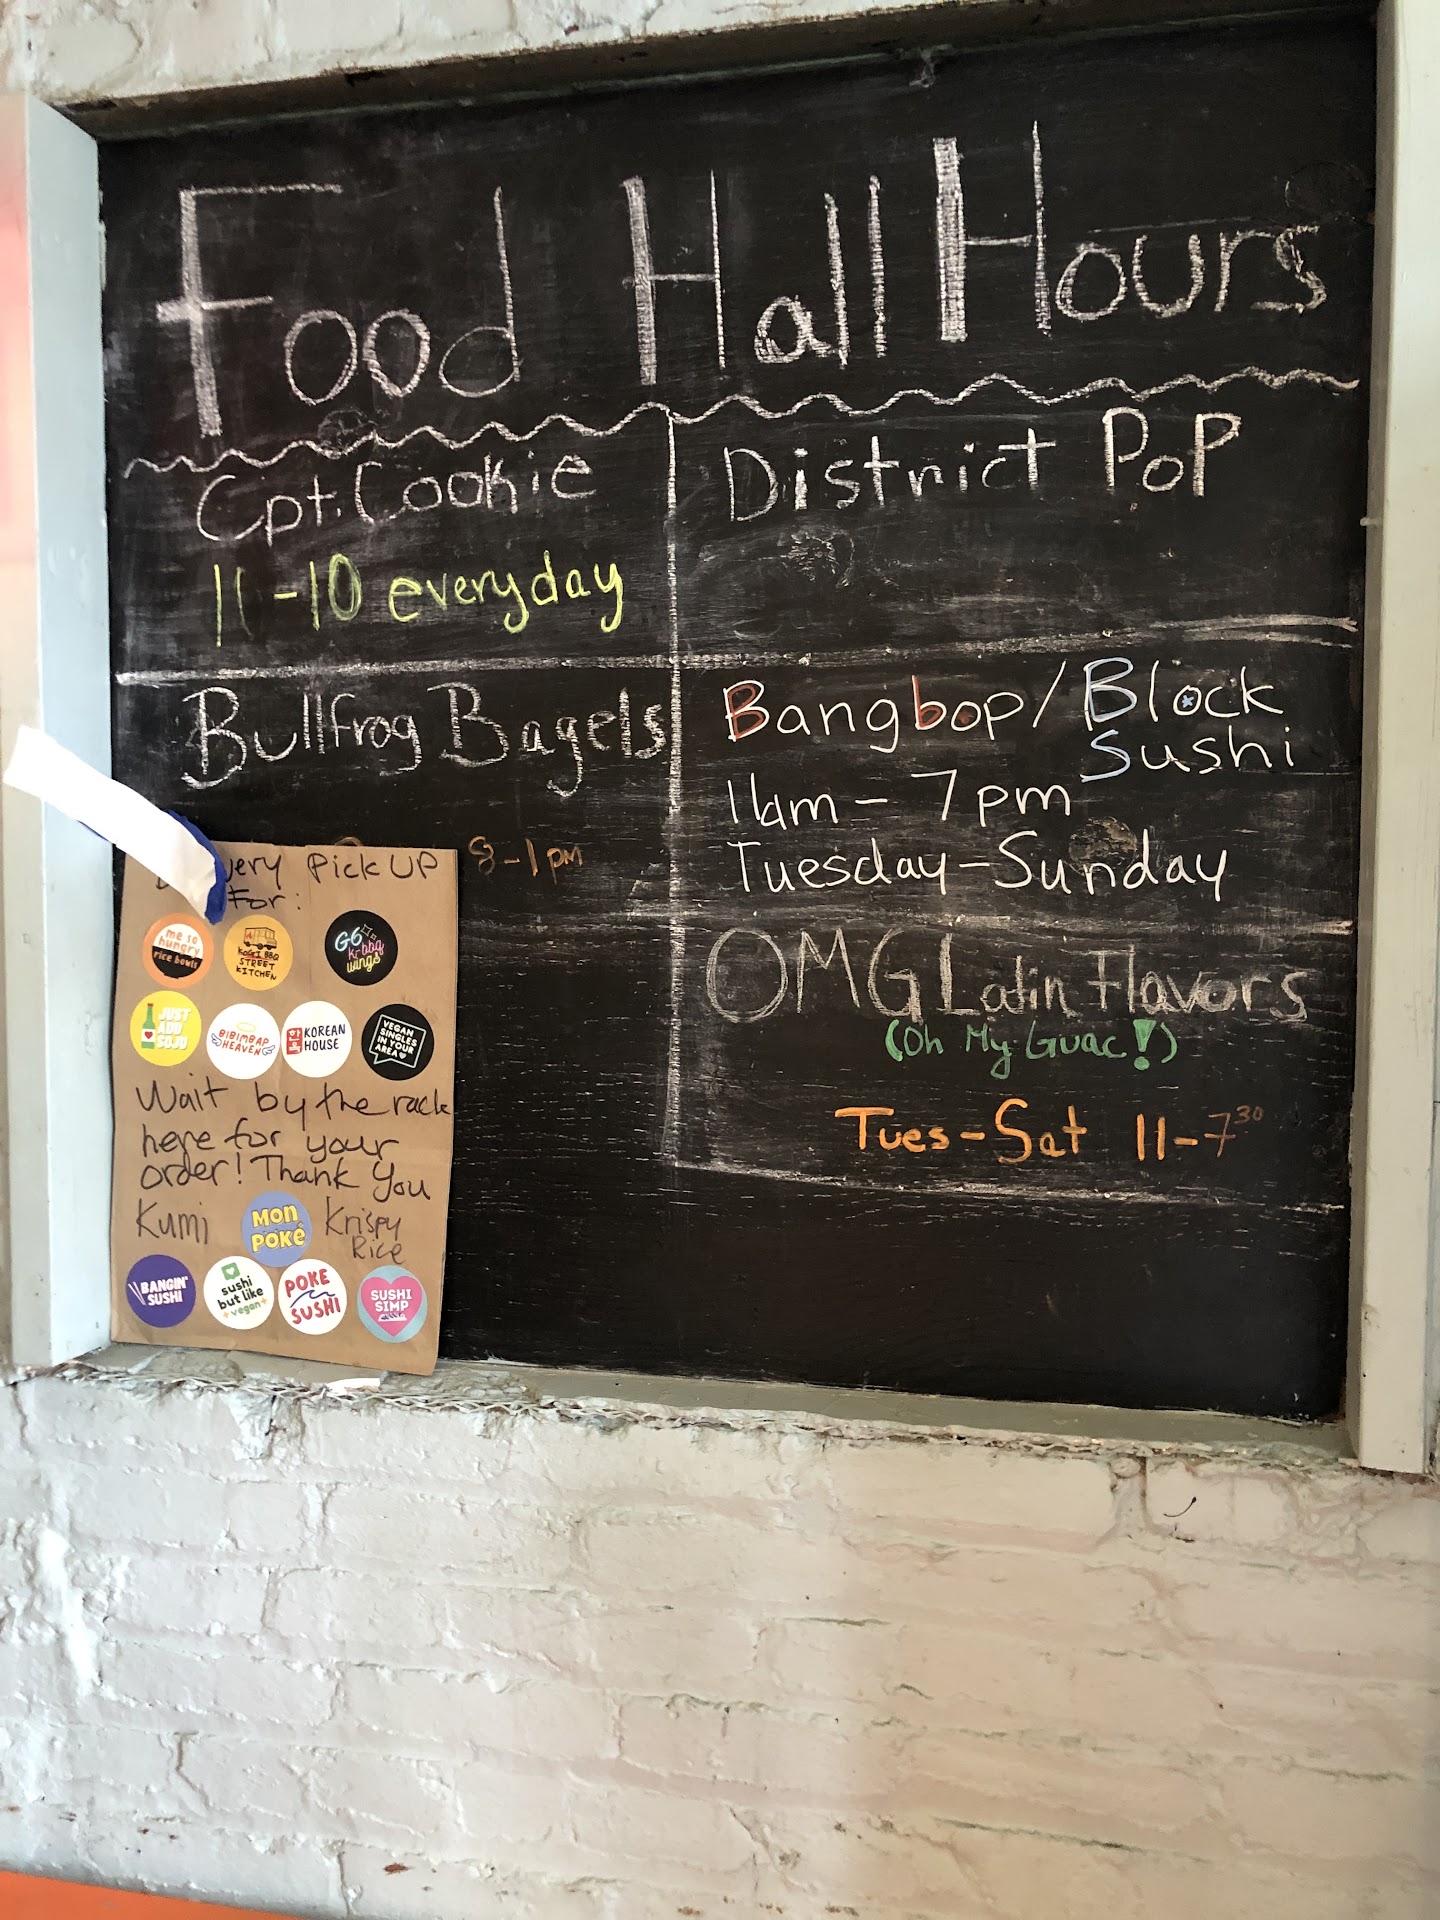 Food Hall Hours
Cpt. Cookie
11-10 everyday
District PoP
Bullfrog Bagels
8-1pm
Bangbop/Block
Sushi
11am - 7pm
Tuesday-Sunday
OMG Latin Flavors
(Oh My Guac!)
Tues-Sat 11-7³⁰
Pick UP
For:
me so
hungry
rice bowls
STREET
KITCHEN
G6
wings
JUST
ADD
SOJU
BIBIMBAP
HEAVEN
KOREAN
HOUSE
VEGAN
SINGLES
IN YOUR
AREA
Wait by the rack
here for your
order! Thank You
Kumi
MON
POKÉ
Krispy
Rice
BANGIN'
SUSHI
sushi
but like
vegan
POKE
SUSHI
SUSHI
SIMP